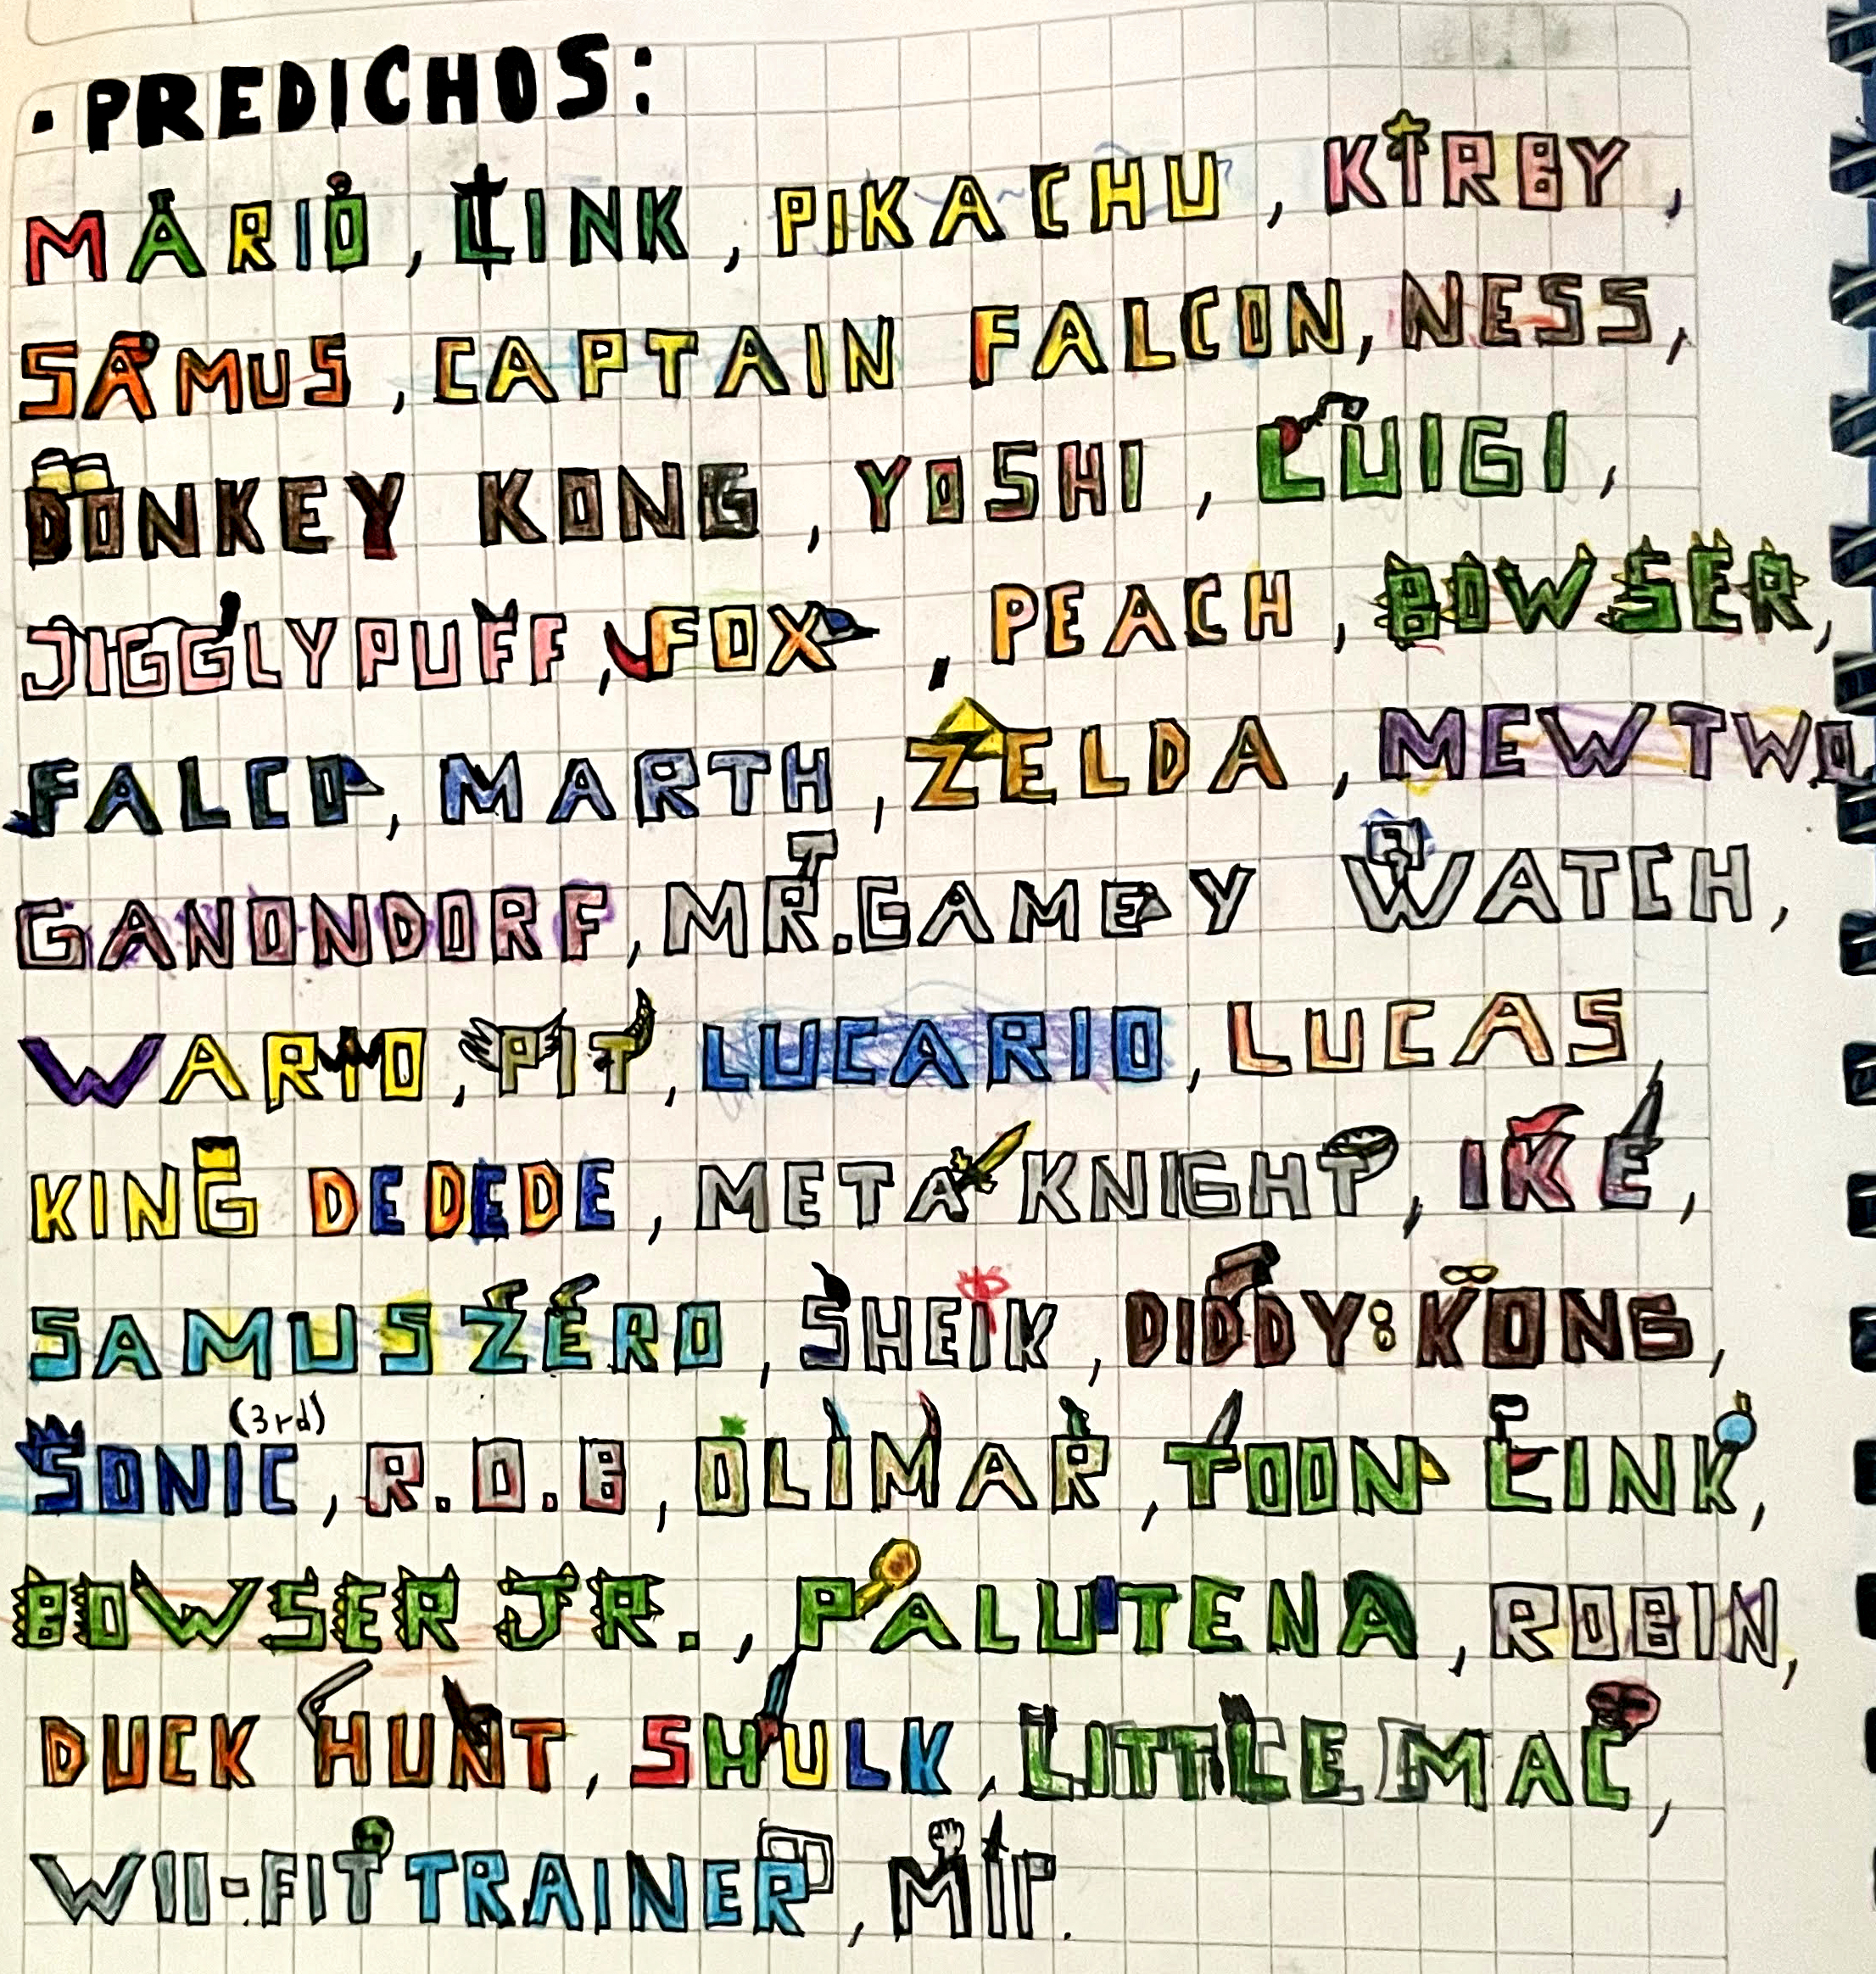 · PREDICHOS:
MARIO, LINK, PIKACHU, KIRBY,
SAMUS, CAPTAIN FALCON, NESS,
DONKEY KONG, YOSHI, LUIGI,
JIGGLYPUFF, FOX, PEACH, BOWSER,
FALCO, MARTH, ZELDA, MEWTWO
GANONDORF, MR.GAME Y WATCH,
WARIO, PIT, LUCARIO, LUCAS,
KING DEDEDE, META KNIGHT, IKE,
SAMUS ZERO, SHEIK, DIDDY KONG,
SONIC (3rd), R.O.B, OLIMAR, TOON LINK,
BOWSER JR., PALUTENA, ROBIN,
DUCK HUNT, SHULK, LITTLE MAC,
WII-FIT TRAINER, MIP.